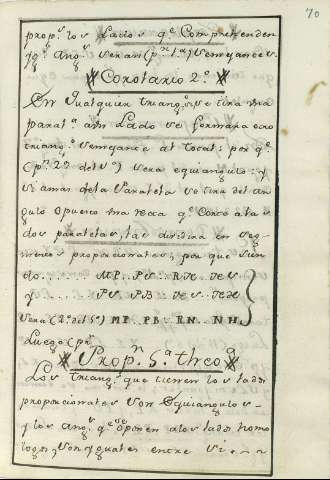 70
prop.s los Lados q.e Comprehenden
Corolario 2.o
En qualquier triang.o si se tira una
paral.a a un Lado se formara otro
triang.o semejante al total: por q.e
sera equiangulo: y
si a mas de la Paralela se tira del an-
gulo opuesto una recta q.e corte a las
dos paralelas, las dividira en seg-
mentos proporcionales, por que sien-
do
y
sera (2.a del 5.o) MP . PB . RN . NH
Luego
Prop.n 5.a theo.a
Los triang.s que tienen los lados
proporcionales son Equiangulos
y los ang.s q.e se oponen a los lados homo
logos, son yguales entre si